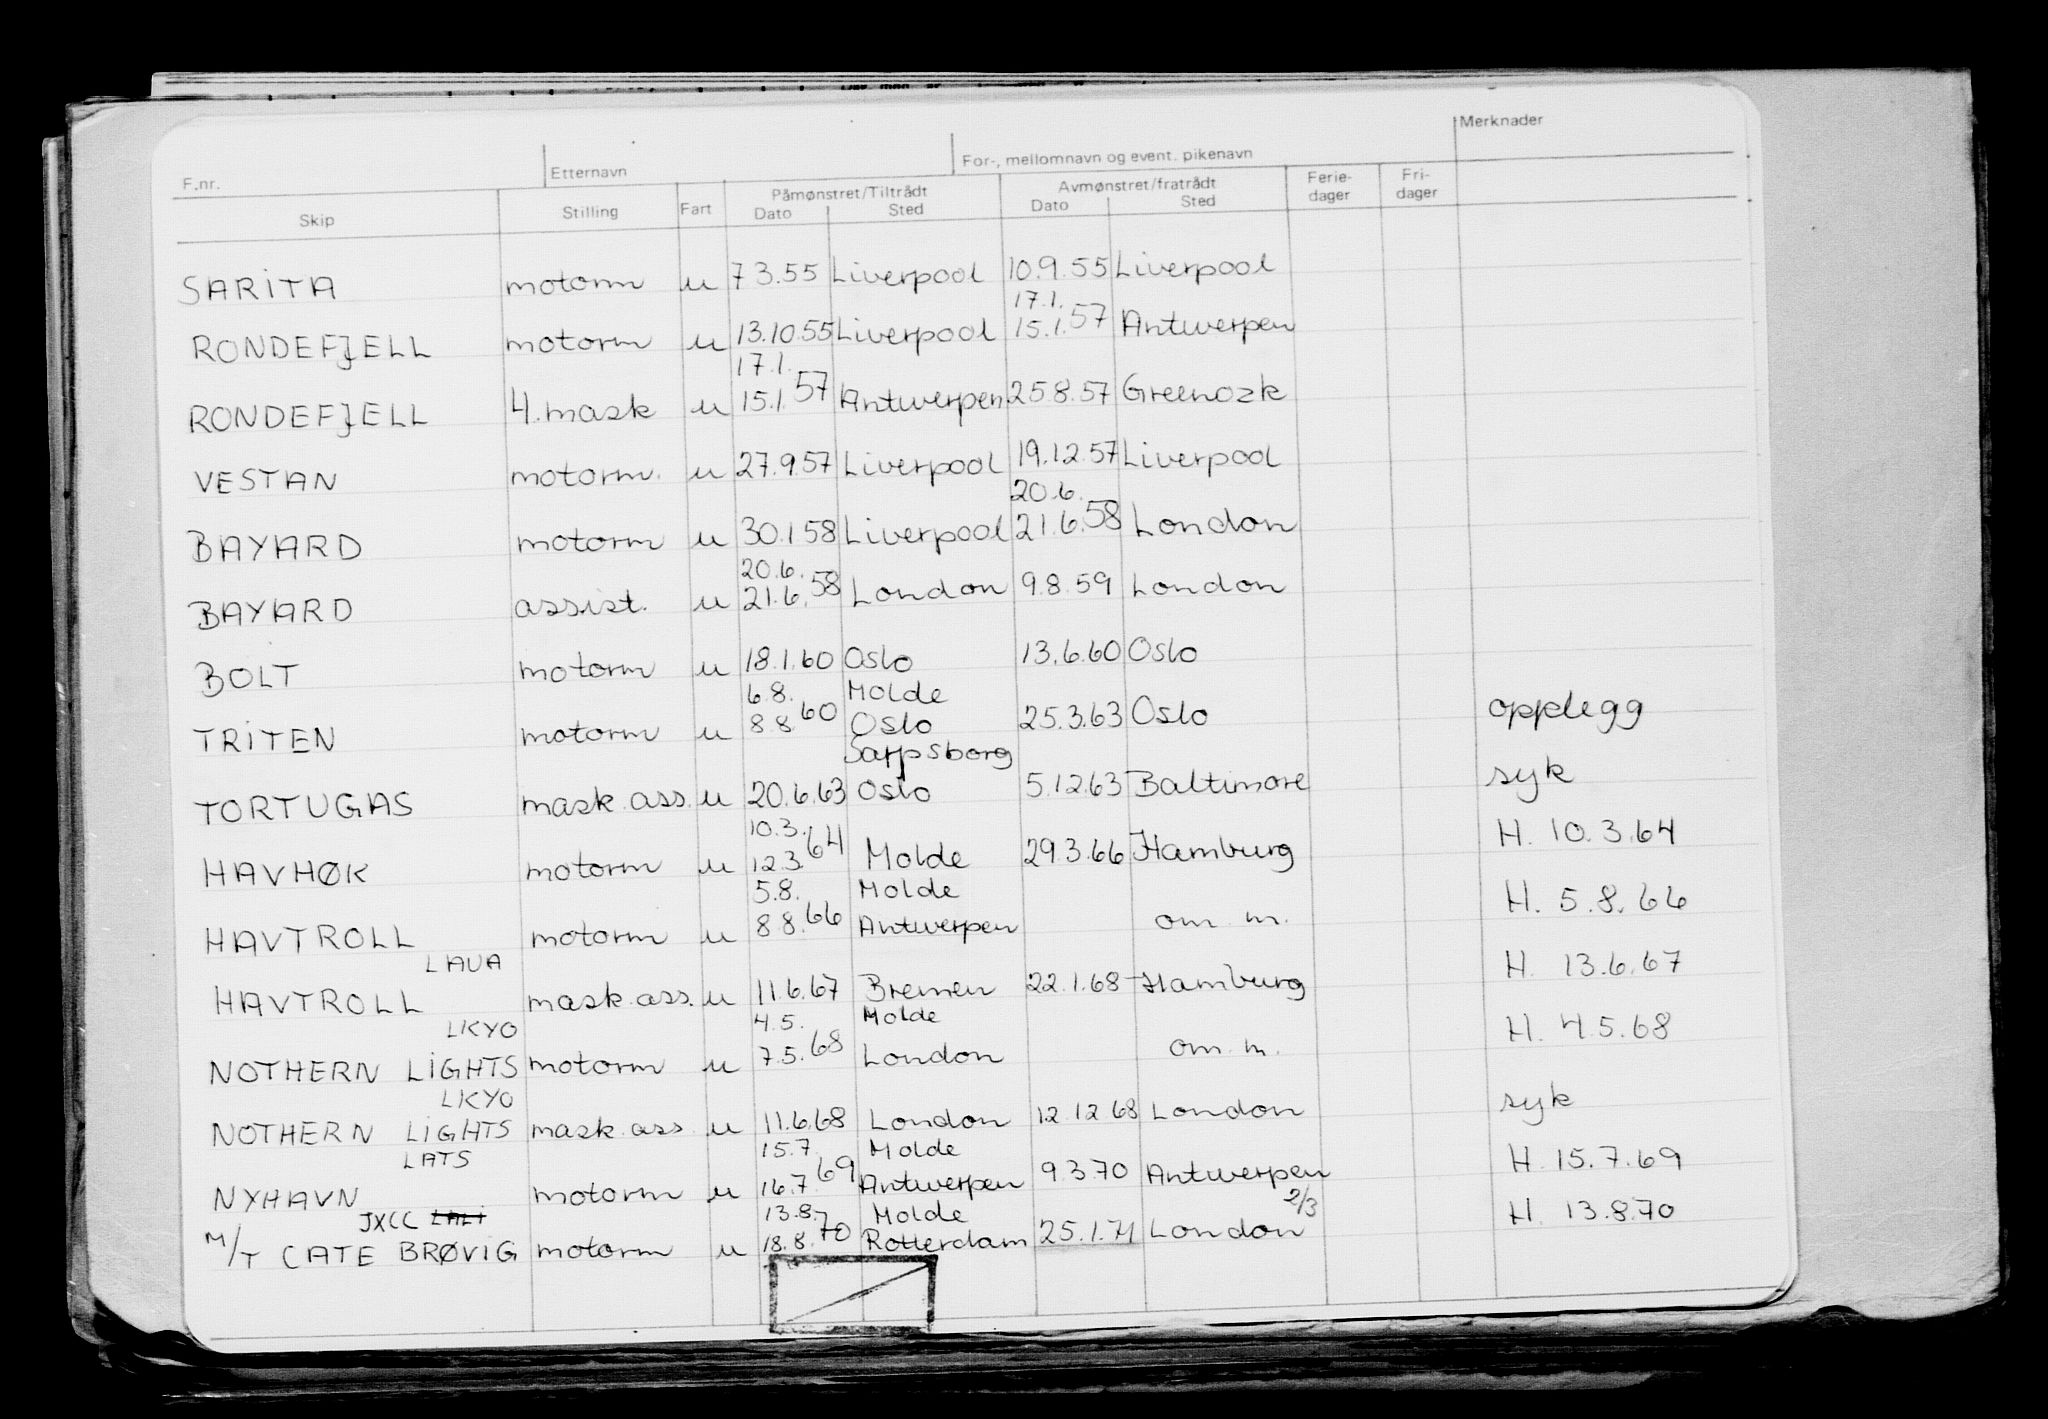 F.nr. Etternavn For-, mellomnavn og event. pikenavn Merknader
Skip Stilling Fart Påmønstret/Tiltrådt Dato Sted Avmønstret/fratrådt Dato Sted Ferie-dager Fri-dager
SARITA motorm u 7 3.55 Liverpool 10.9.55 Liverpool
17.1.
RONDEFJELL motorm u 13.10.55 Liverpool 15.1.57 Antwerpen
17.1.
RONDEFJELL 4.mask u 15.1.57 Antwerpen 25.8.57 Greenock
VESTAN motorm. u 27.9.57 Liverpool 19.12.57 Liverpool
20.6.
BAYARD motorm u 30.1.58 Liverpool 21.6.58 London
20.6.
BAYARD assist. u 21.6.58 London 9.8.59 London
BOLT motorm u 18.1.60 Oslo 13.6.60 Oslo
6.8. Molde
TRITEN motorm u 8.8.60 Oslo 25.3.63 Oslo opplegg
Sarpsborg
TORTUGAS mask.ass. u 20.6.63 Oslo 5.12.63 Baltimore syk
10.3.
HAVHØK motorm u 12.3.64 Molde 29.3.66 Hamburg H. 10.3.64
5.8. Molde
HAVTROLL motorm u 8.8.66 Antwerpen om. m. H. 5.8.66
LAUA
HAVTROLL mask.ass. u 11.6.67 Bremen 22.1.68 Hamburg H. 13.6.67
LKYO 4.5. Molde
NOTHERN LIGHTS motorm u 7.5.68 London om. m. H. 4.5.68
LKYO
NOTHERN LIGHTS mask.ass u 11.6.68 London 12.12.68 London syk
LATS 15.7. Molde
NYHAVN motorm u 16.7.69 Antwerpen 9.3.70 Antwerpen H. 15.7.69
JXCC LALI 13.8. Molde 2/3
M/T CATE BRØVIG motorm u 18.8.70 Rotterdam 25.1.71 London H. 13.8.70